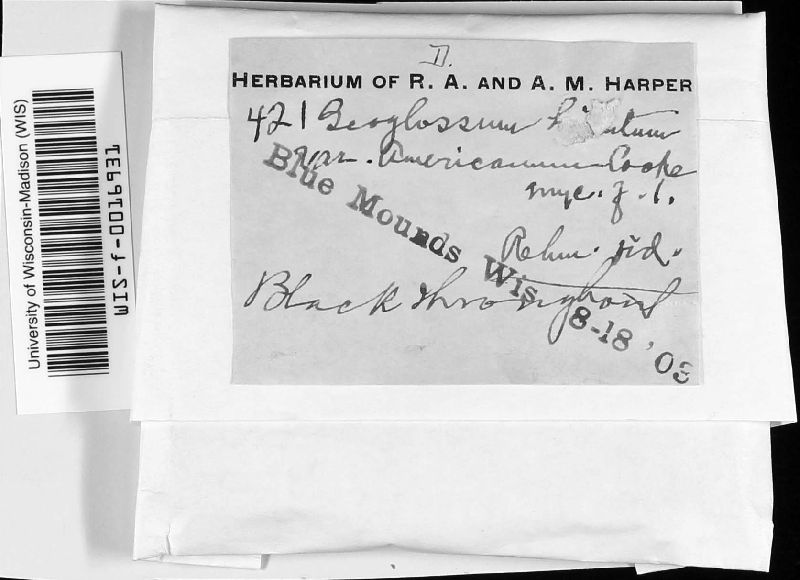 D.
HERBARIUM OF R. A. AND A. M. HARPER
421 Geoglossum hirsutum
var. Americanum Cooke
myc. f. 1.
Rehm. rid.
Black throughout
Blue Mounds Wis. 8-18 '03
University of Wisconsin-Madison (WIS)
WIS-f-0019613